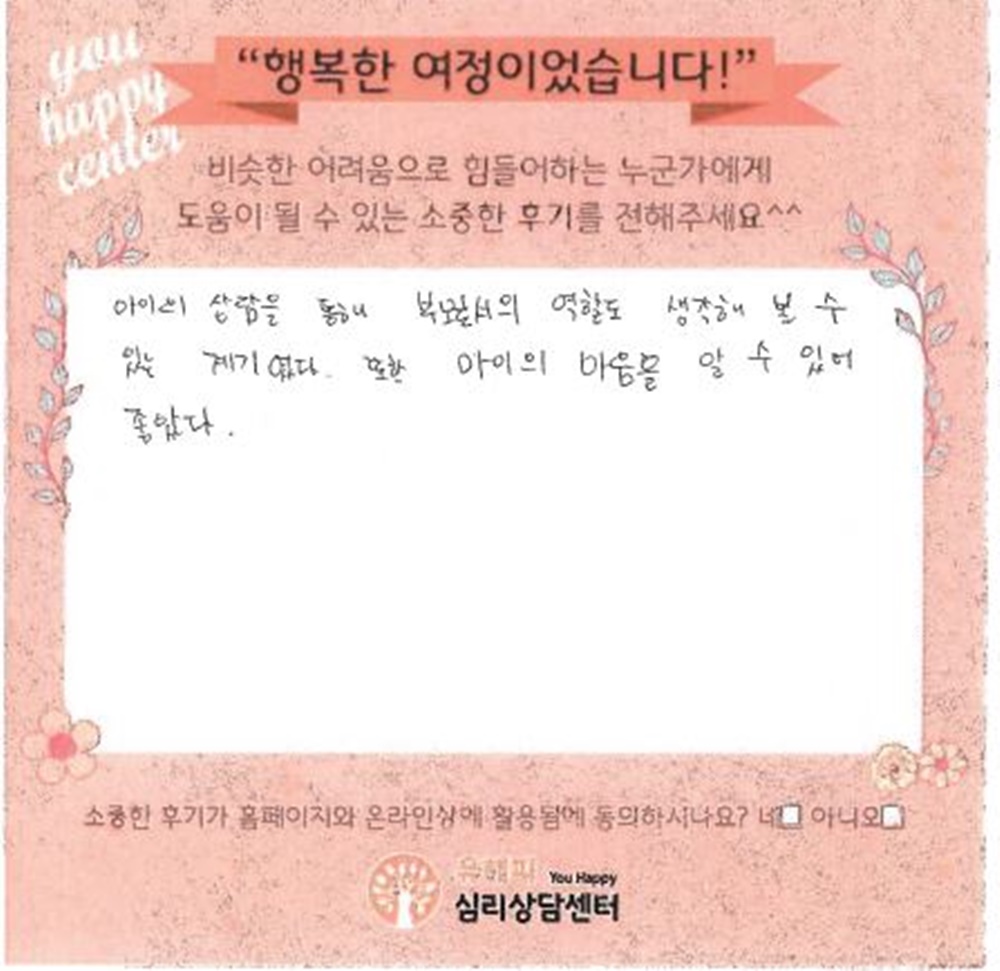 you
happy
center
“행복한 여정이었습니다!”
비슷한 어려움으로 힘들어하는 누군가에게
도움이 될 수 있는 소중한 후기를 전해주세요^^
아이의 상담을 통해 부모로서의 역할도 생각해 볼 수
있는 계기였다. 또한 아이의 마음을 알 수 있어
좋았다.
소중한 후기가 홈페이지와 온라인상에 활용됨에 동의하시나요? 네 아니오
유해피 You Happy
심리상담센터